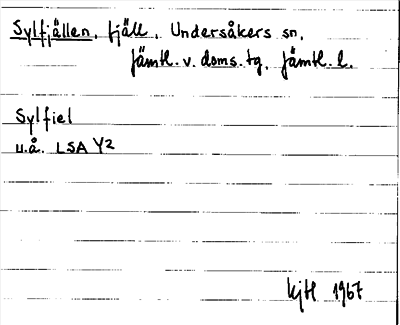 Sylfjällen, fjäll, Undersåkers sn,
Jämtl. v. doms. tg, Jämtl. l.
Sylfiel
u.å. LSA Y2
kjH 1967